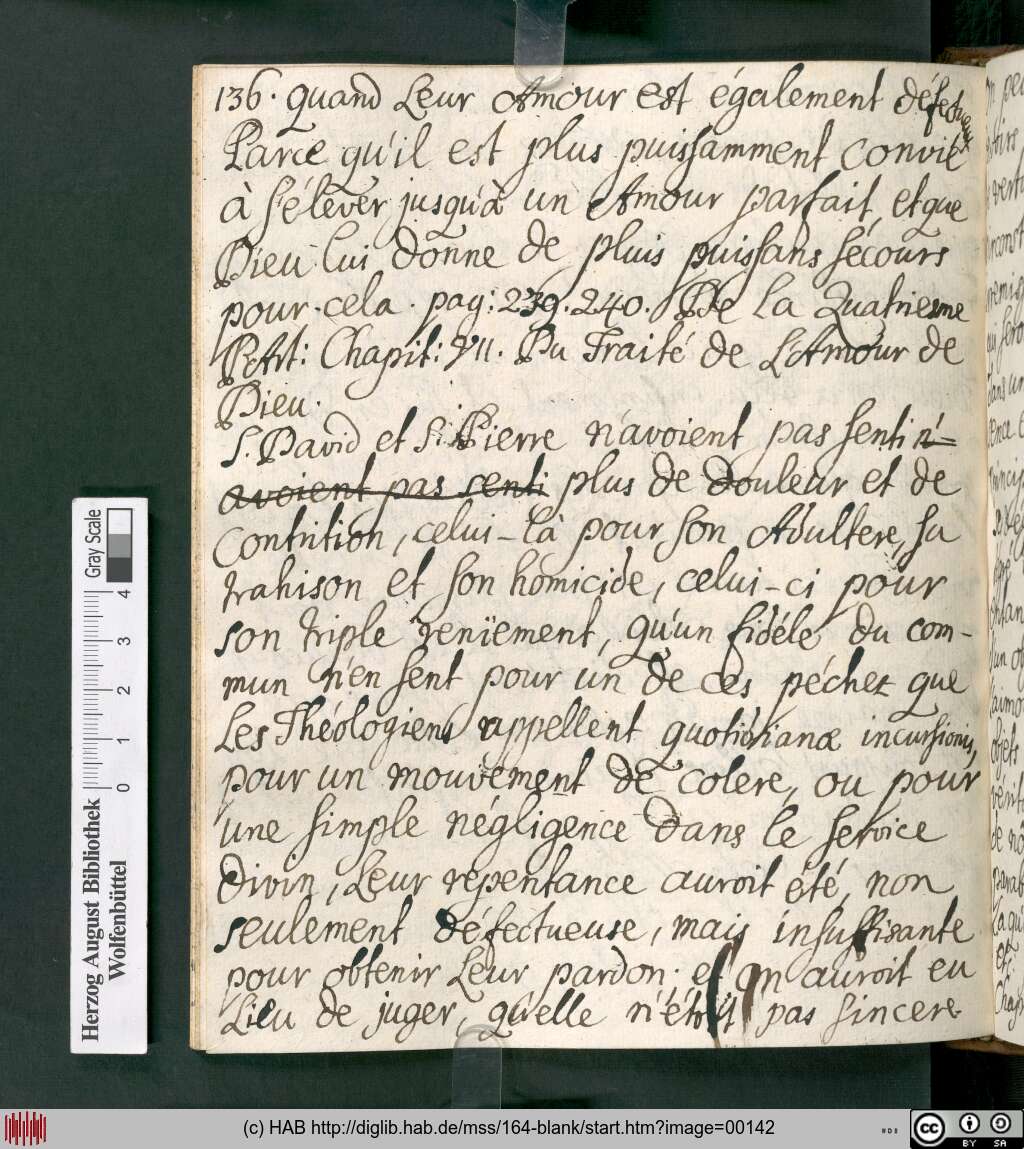 136. quand Leur Amour est également défectueux
Parce qu'il est plus puissamment convié
à s'élever jusqu'à un Amour parfait, et que
Dieu lui donne de pluis puissans sécours
pour cela. pag: 239. 240. De la Quatriesme
Part: Chapit: VII. Du Traité de L'Amour de
Dieu.
S. David et S. Pierre n'avoient pas senti n'-
avoient pas senti plus de douleur et de
Contrition, celui-là pour son Adultere, sa
trahison et son homicide, celui-ci pour
son triple renïement, qu'un fidéle du com-
mun n'en sent pour un de ces péchez que
Les Théologiens appellent quotidianæ incursionis,
pour un mouvement de colere, ou pour
une simple négligence dans le service
Divin, Leur repentance auroit été, non
seulement défectueuse, mais insuffisante
pour obtenir Leur pardon. et on auroit eu
Lieu de juger, qu'elle n'étoit pas sincere.
Herzog August Bibliothek
Wolfenbüttel
0 1 2 3 4
Gray Scale
(c) HAB http://diglib.hab.de/mss/164-blank/start.htm?image=00142
cc BY SA